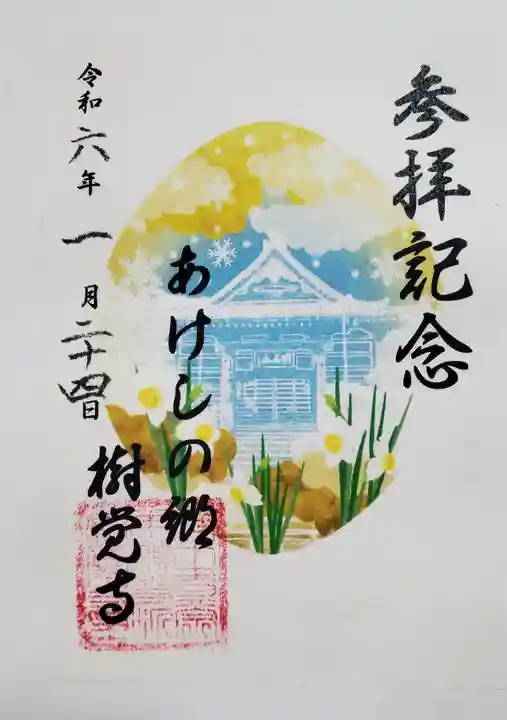 参拝記念
あけしの郷
樹覚寺
令和六年一月二十四日